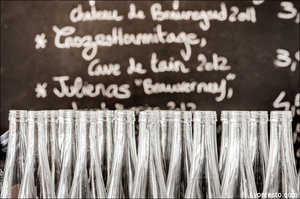 chateau de Beauregard 2011
* Crozes Hermitage,
Cave de tain 2012
* Julienas "Beauvernay",
3,
4,
© Lyonresto.com